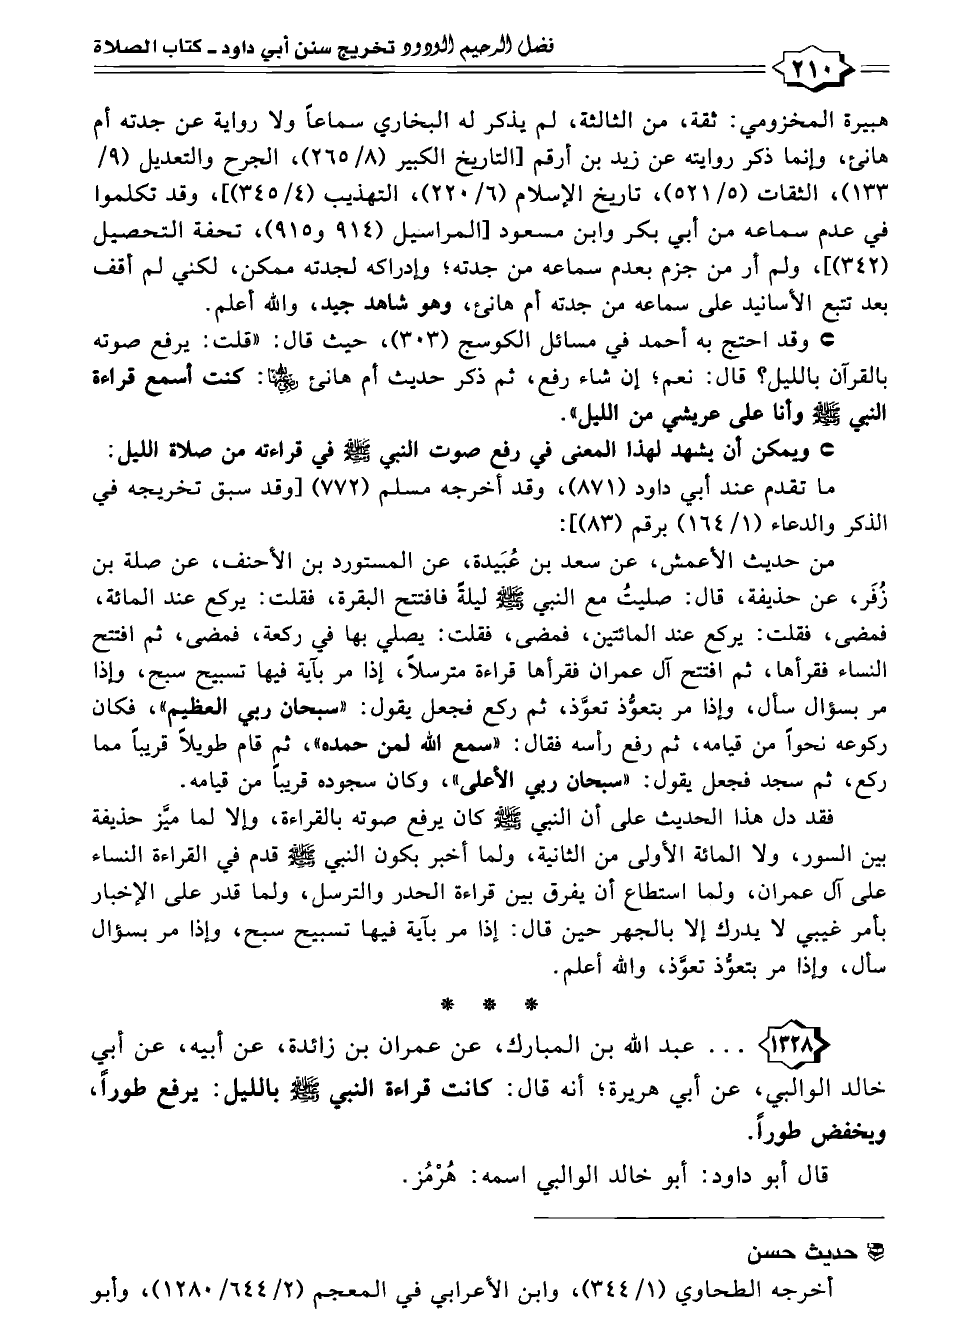 فضل الرحيم الودود تخريج سنن أبي داود - كتاب الصلاة
٢١٠
هبيرة المخزومي: ثقة، من الثالثة، لم يذكر له البخاري سماعاً ولا رواية عن جدته أم
هانئ، وإنما ذكر روايته عن زيد بن أرقم [التاريخ الكبير (٨/ ٢٦٥)، الجرح والتعديل (٩/
١٣٣)، الثقات (٥/ ٥٢١)، تاريخ الإسلام (٦/ ٢٢٠)، التهذيب (٤/ ٣٤٥)]، وقد تكلموا
في عدم سماعه من أبي بكر وابن مسعود [المراسيل (٩١٤ و٩١٥)، تحفة التحصيل
(٣٤٢)]، ولم أر من جزم بعدم سماعه من جدته؛ وإدراكه لجدته ممكن، لكني لم أقف
بعد تتبع الأسانيد على سماعه من جدته أم هانئ، وهو شاهد جيد، والله أعلم.
⊂ وقد احتج به أحمد في مسائل الكوسج (٣٠٣)، حيث قال: «قلت: يرفع صوته
بالقرآن بالليل؟ قال: نعم؛ إن شاء رفع، ثم ذكر حديث أم هانئ رضي الله عنها: كنت أسمع قراءة
النبي ﷺ وأنا على عريشي من الليل».
⊂ ويمكن أن يشهد لهذا المعنى في رفع صوت النبي ﷺ في قراءته من صلاة الليل:
ما تقدم عند أبي داود (٨٧١)، وقد أخرجه مسلم (٧٧٢) [وقد سبق تخريجه في
الذكر والدعاء (١/ ١٦٤) برقم (٨٣)]:
من حديث الأعمش، عن سعد بن عُبَيدة، عن المستورد بن الأحنف، عن صلة بن
زُفَر، عن حذيفة، قال: صليتُ مع النبي ﷺ ليلةً فافتتح البقرة، فقلت: يركع عند المائة،
فمضى، فقلت: يركع عند المائتين، فمضى، فقلت: يصلي بها في ركعة، فمضى، ثم افتتح
النساء فقرأها، ثم افتتح آل عمران فقرأها قراءة مترسلاً، إذا مر بآية فيها تسبيح سبح، وإذا
مر بسؤال سأل، وإذا مر بتعوُّذ تعوَّذ، ثم ركع فجعل يقول: «سبحان ربي العظيم»، فكان
ركوعه نحواً من قيامه، ثم رفع رأسه فقال: «سمع الله لمن حمده»، ثم قام طويلاً قريباً مما
ركع، ثم سجد فجعل يقول: «سبحان ربي الأعلى»، وكان سجوده قريباً من قيامه.
فقد دل هذا الحديث على أن النبي ﷺ كان يرفع صوته بالقراءة، وإلا لما ميَّز حذيفة
بين السور، ولا المائة الأولى من الثانية، ولما أخبر بكون النبي ﷺ قدم في القراءة النساء
على آل عمران، ولما استطاع أن يفرق بين قراءة الحدر والترسل، ولما قدر على الإخبار
بأمر غيبي لا يدرك إلا بالجهر حين قال: إذا مر بآية فيها تسبيح سبح، وإذا مر بسؤال
سأل، وإذا مر بتعوُّذ تعوَّذ، والله أعلم.
* * *
١٣٢٨ ... عبد الله بن المبارك، عن عمران بن زائدة، عن أبيه، عن أبي
خالد الوالبي، عن أبي هريرة؛ أنه قال: كانت قراءة النبي ﷺ بالليل: يرفع طوراً،
ويخفض طوراً.
قال أبو داود: أبو خالد الوالبي اسمه: هُرْمُز.
حديث حسن
أخرجه الطحاوي (١/ ٣٤٤)، وابن الأعرابي في المعجم (٢/ ٦٤٤/ ١٢٨٠)، وأبو